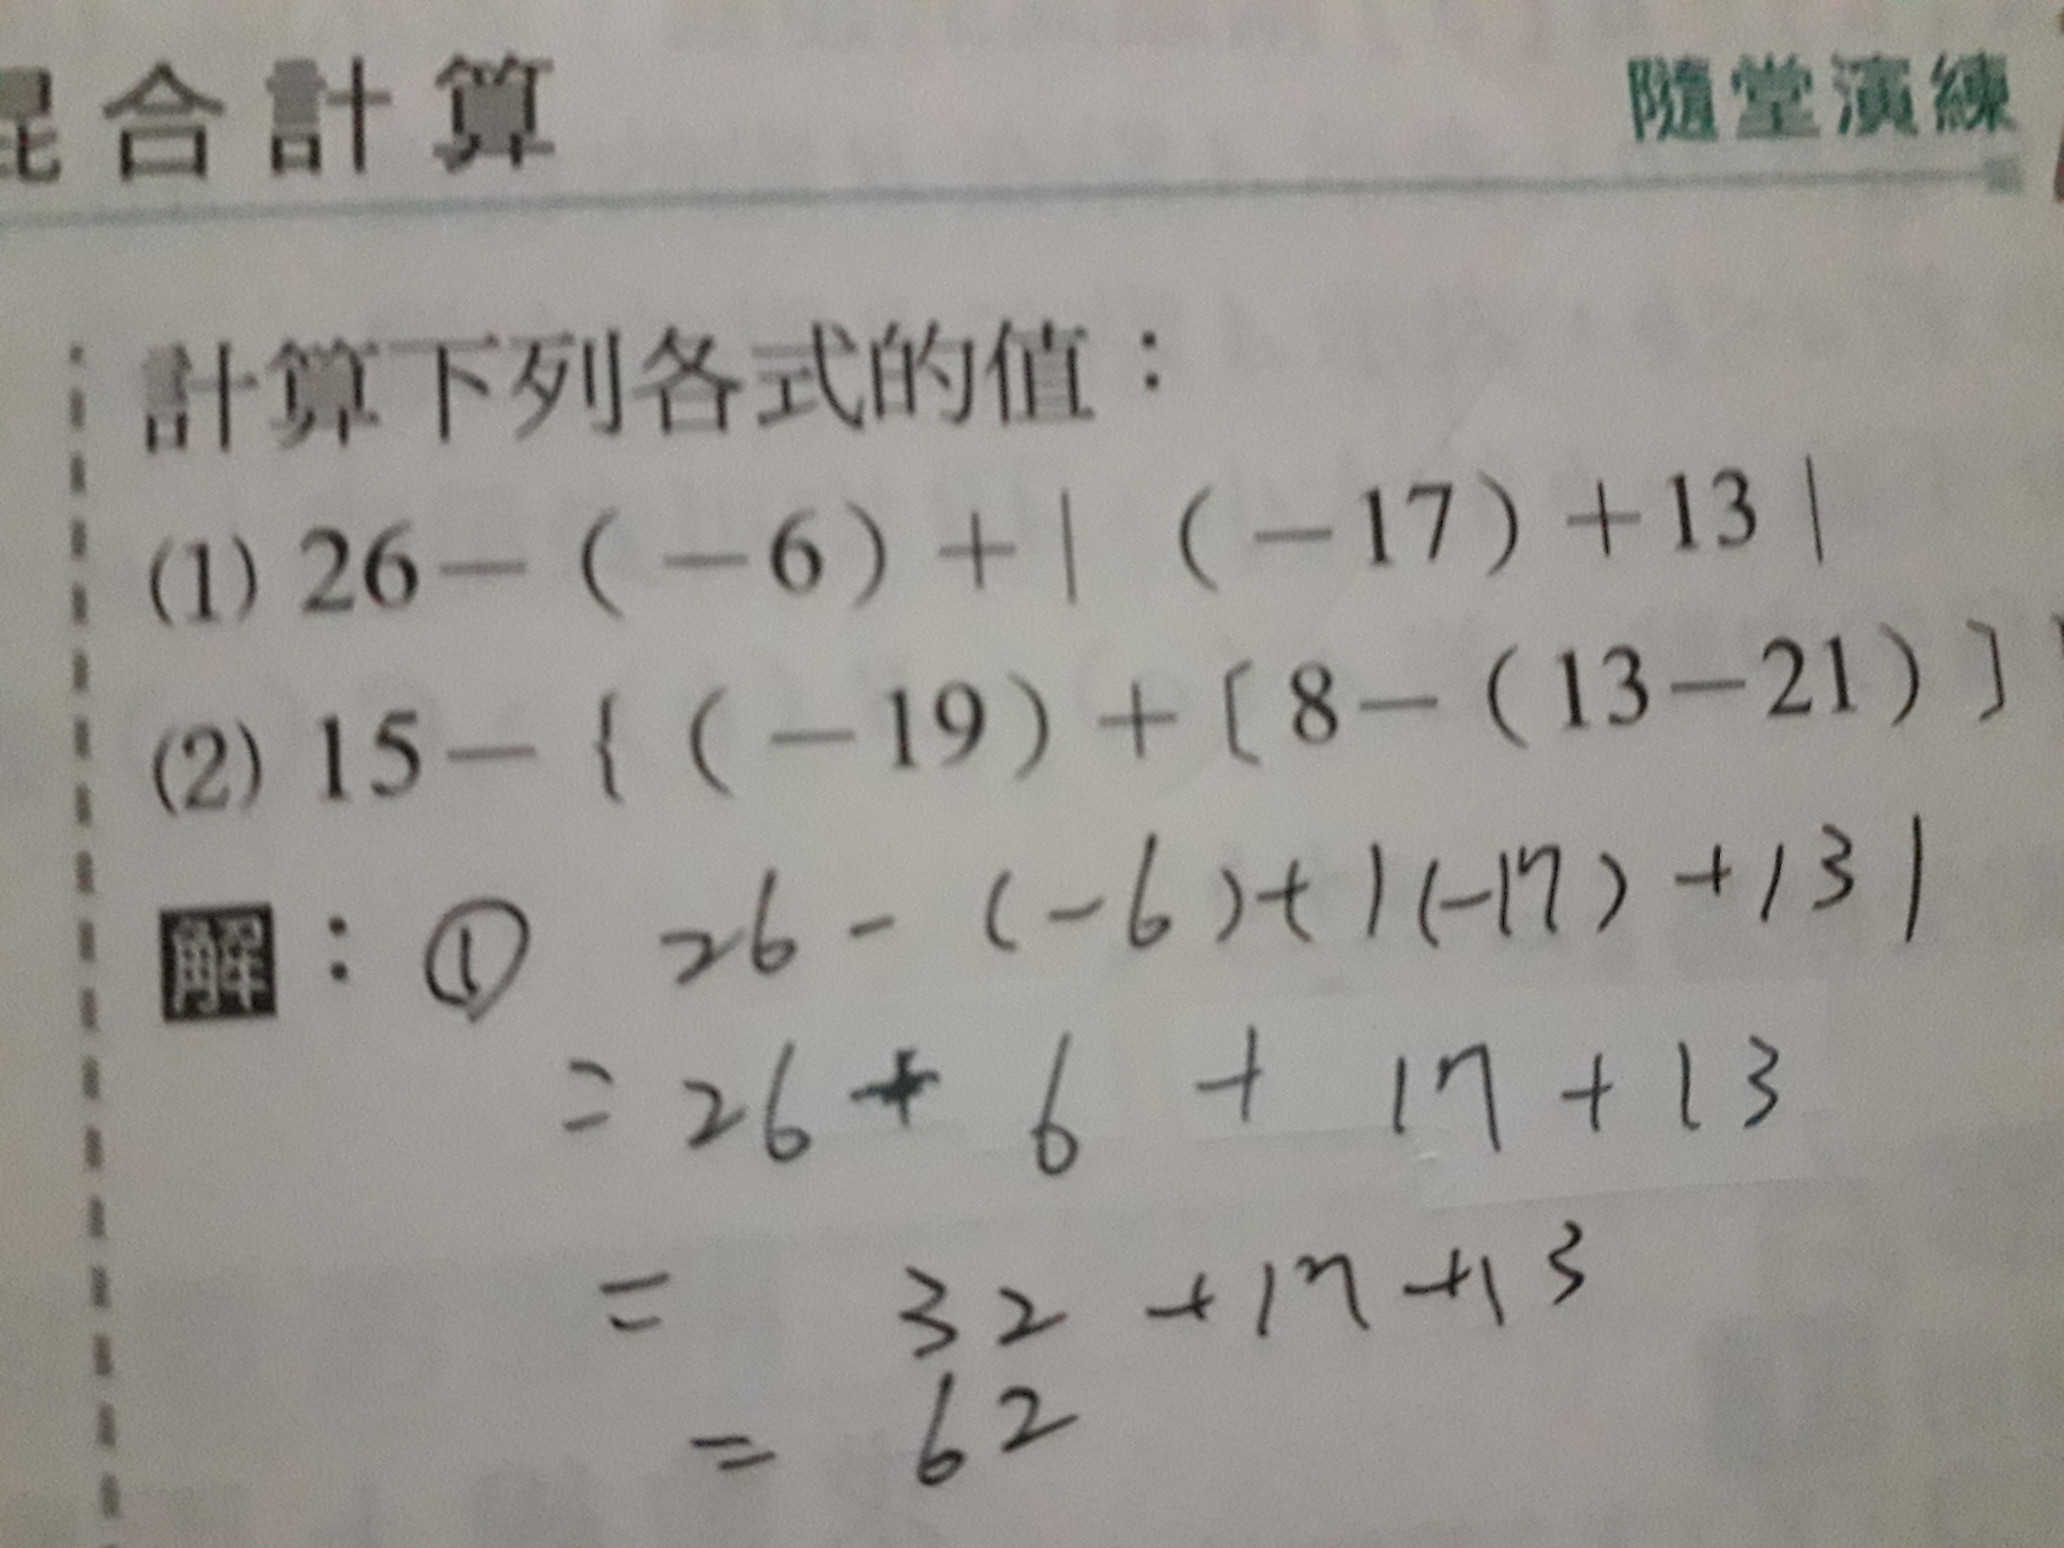 混合計算
隨堂演練
計算下列各式的值：
(1) 26－（－6）＋｜（－17）＋13｜
(2) 15－｛（－19）＋〔8－（13－21）〕
解：① 26 - (-6) + |(-17) + 13|
= 26 + 6 + 17 + 13
= 32 + 17 + 13
= 62